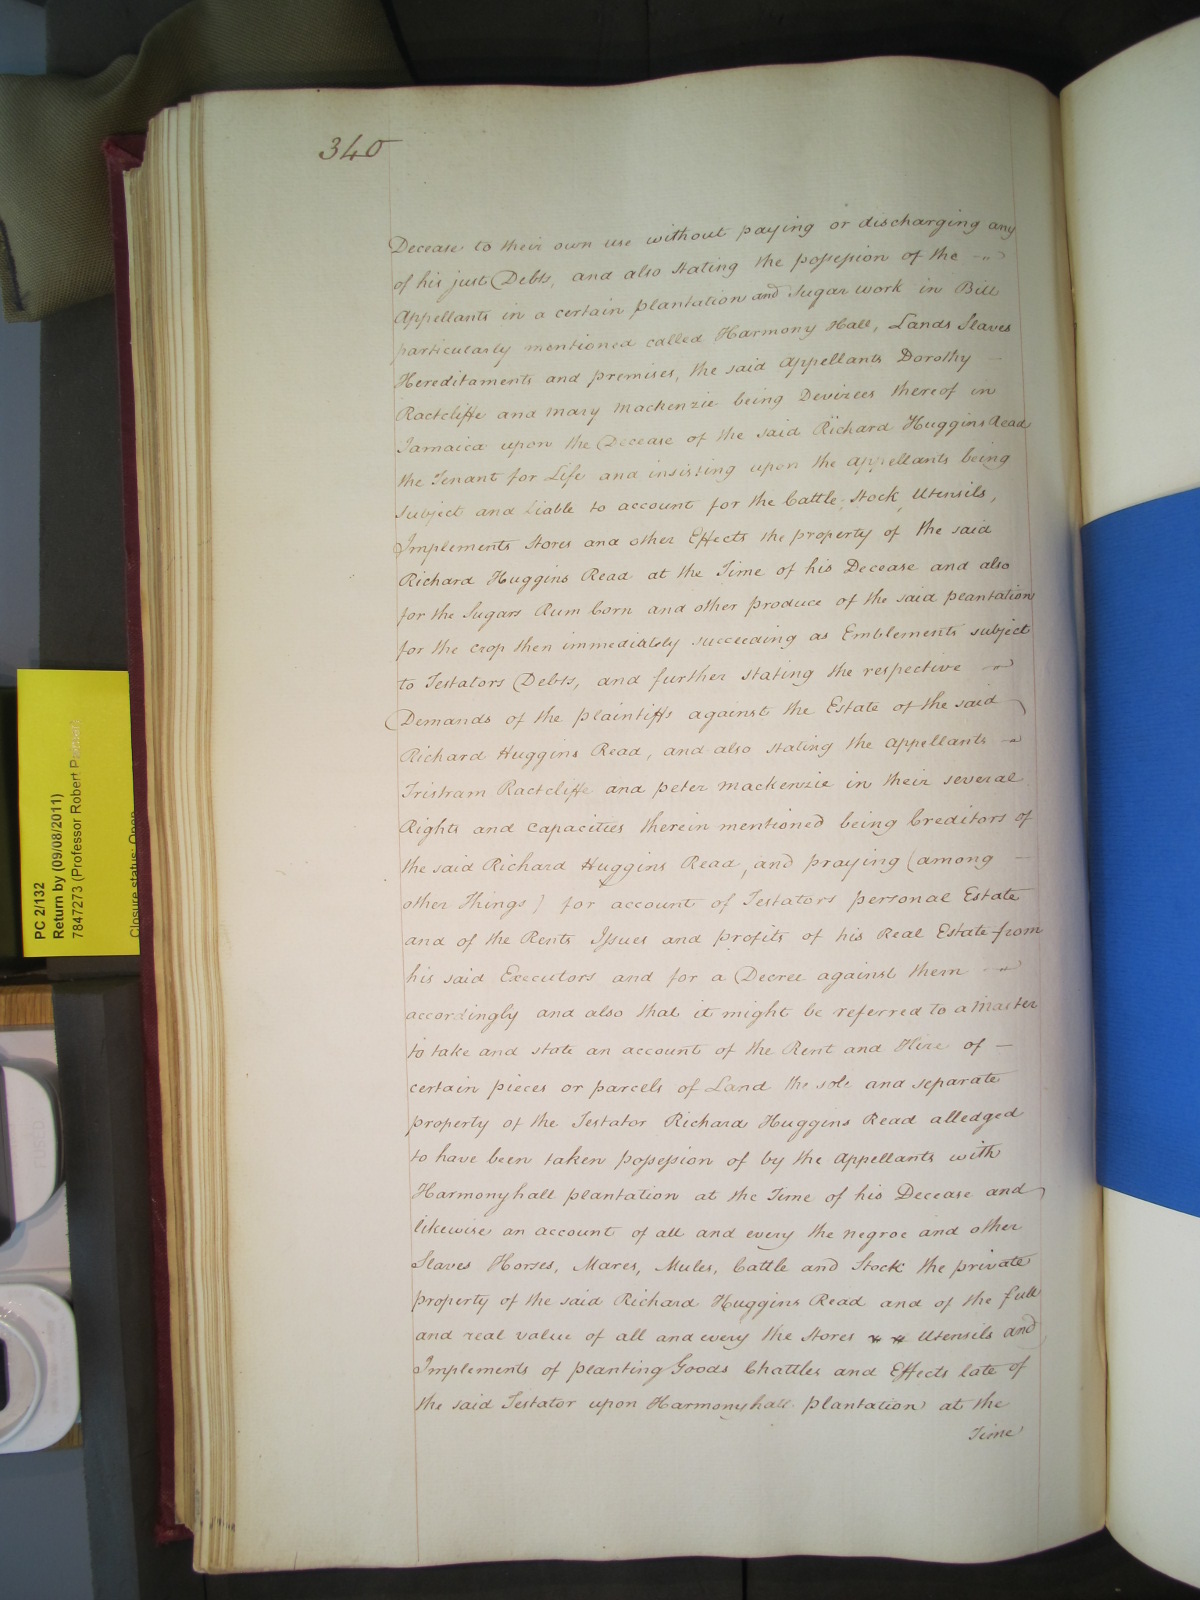 340
Decease to their own use without paying or discharging any
of his just Debts, and also stating the possession of the
Appellants in a certain plantation and Sugar work in Bill
particularly mentioned called Harmony Hall, Lands Slaves
Hereditaments and premises, the said Appellants Dorothy
Ractcliffe and Mary Mackenzie being Devizees thereof in
Jamaica upon the Decease of the said Richard Huggins Read
the Tenant for Life and insisting upon the appellants being
subject and Liable to account for the Cattle, Stock, Utensils,
Implements Stores and other Effects the property of the said
Richard Huggins Read at the Time of his Decease and also
for the Sugars Rum Corn and other produce of the said plantation
for the crop then immediately succeeding as Emblements subject
to Testators Debts, and further stating the respective
Demands of the plaintiffs against the Estate of the said
Richard Huggins Read, and also stating the appellants
Tristram Ractcliffe and peter Mackenzie in their several
Rights and Capacities therein mentioned being Creditors of
the said Richard Huggins Read, and praying (among
other Things) for account of Testators personal Estate
and of the Rents Issues and profits of his Real Estate from
his said Executors and for a Decree against them
accordingly and also that it might be referred to a Master
to take and state an account of the Rent and Hire of —
certain pieces or parcels of Land the sole and separate
property of the Testator Richard Huggins Read alledged
to have been taken possession of by the appellants with
Harmonyhall plantation at the Time of his Decease and
likewise an account of all and every the negroe and other
Slaves Horses, Mares, Mules, Cattle and Stock the private
property of the said Richard Huggins Read and of the full
and real value of all and every the Stores Utensils and
Implements of planting Goods Chattles and Effects late of
the said Testator upon Harmonyhall plantation at the
Time
PC 2/132
Return by (09/08/2011)
7847273 (Professor Robert
Closure status: Open